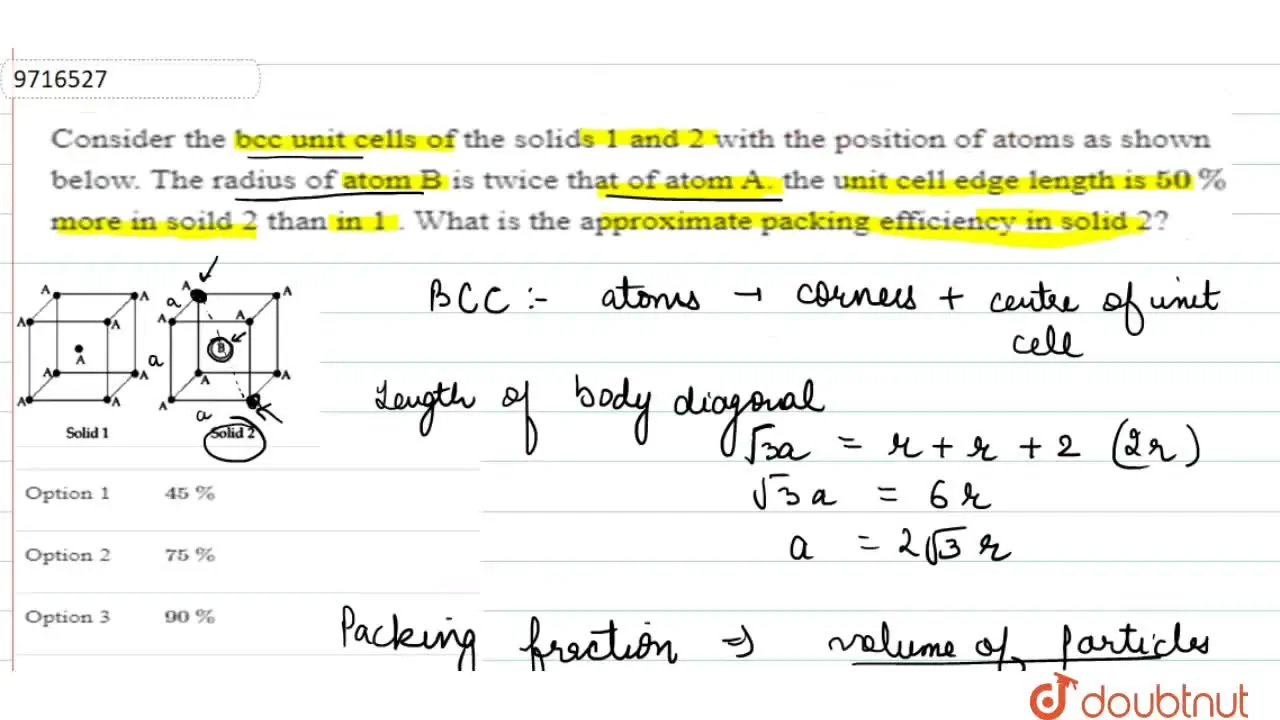 9716527
Consider the bcc unit cells of the solids 1 and 2 with the position of atoms as shown
below. The radius of atom B is twice that of atom A. the unit cell edge length is 50 %
more in soild 2 than in 1 . What is the approximate packing efficiency in solid 2?
A A A A A A A A A
Solid 1
A A A A B A A A A a a a
Solid 2
BCC :- atoms → corners + centre of unit
cell
Length of body diagonal
√3a = r + r + 2 (2r)
√3a = 6r
a = 2√3 r
Option 1 45 %
Option 2 75 %
Option 3 90 %
Packing fraction ⇒ volume of particles
doubtnut